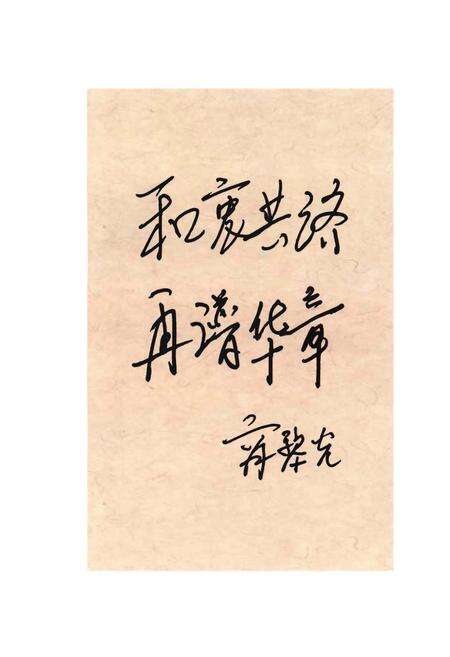 和衷共济
再谱华章
黎光